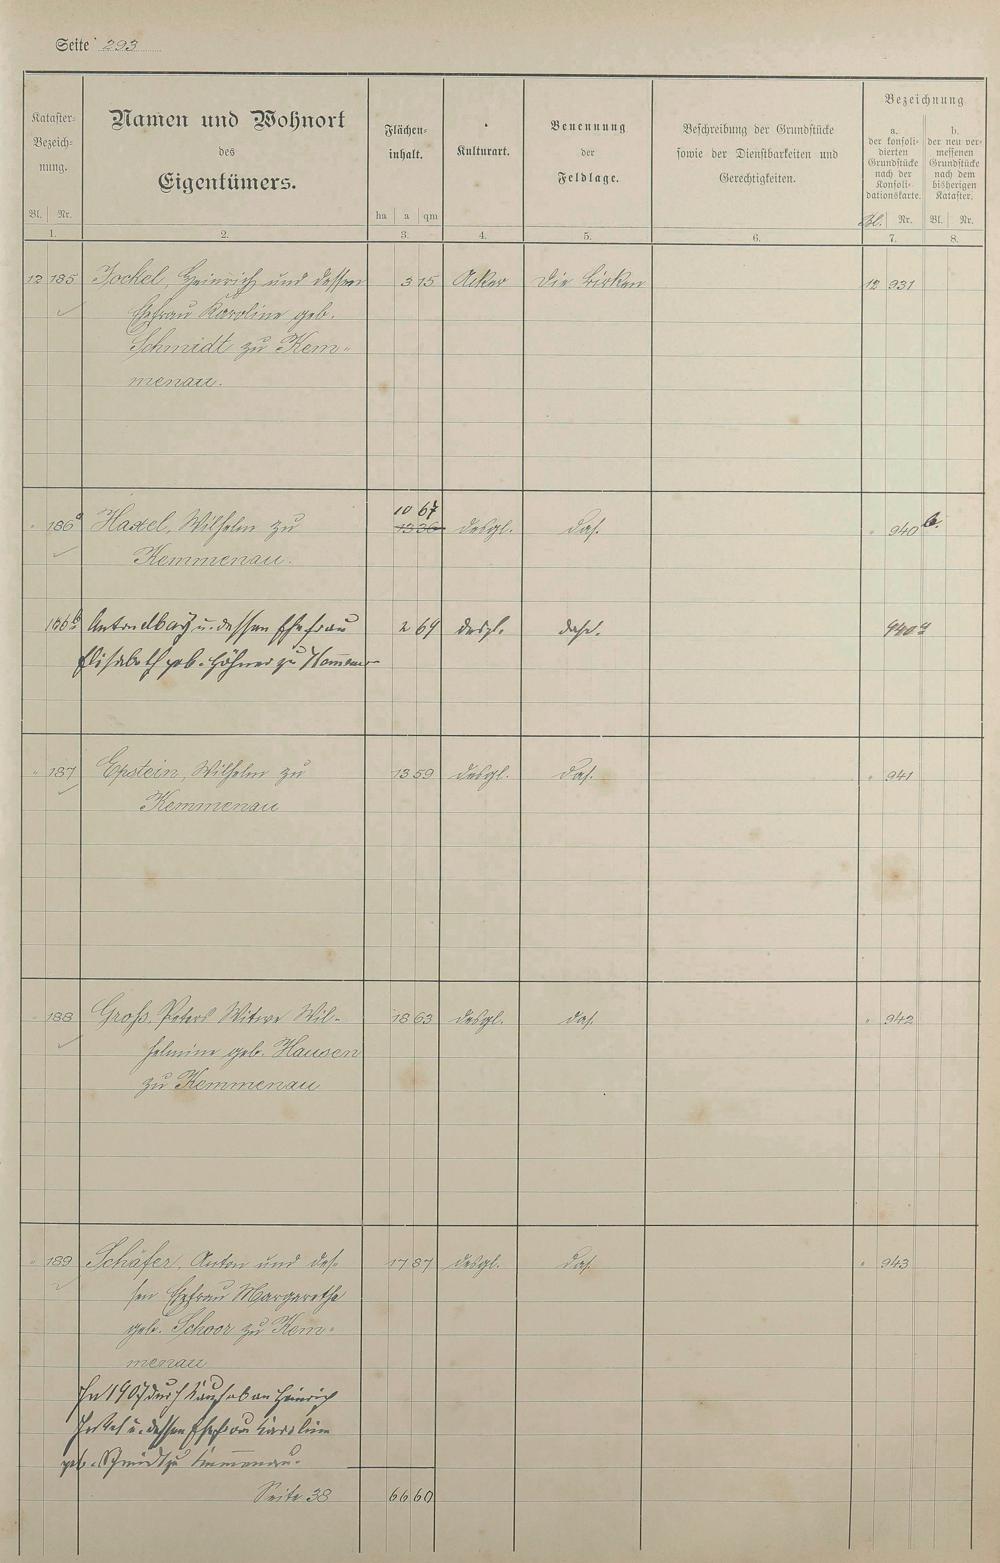 Seite 293
Kataster-Bezeich-nung.
Namen und Wohnort
des
Eigentümers.
Flächen-inhalt.
Kulturart.
Benennung
der
Feldlage.
Beschreibung der Grundstücke
sowie der Dienstbarkeiten und
Gerechtigkeiten.
Bezeichnung
a.
der konsoli-
dierten
Grundstücke
nach der
Konsoli-
dationskarte.
b.
der neu ver-
messenen
Grundstücke
nach dem
bisherigen
Kataster.
Bl. Nr. ha a qm Bl. Nr. Bl. Nr.
1. 2. 3. 4. 5. 6. 7. 8.
12 185 Jockel, Heinrich und dessen 3 15 Acker Die Birken 12 931
Ehefrau Karoline geb.
Schmidt zu Kem-
menau.
10 67
" 186a Haxel, Wilhelm zu 13 36 desgl. das. " 940 b.
Kemmenau.
186b Anton u. dessen Ehefrau 2 69 desgl. das. 940a
Elisabeth geb. zu
" 187 Epstein, Wilhelm zu 13 59 desgl. das. " 941
Kemmenau
" 188 Groß, Peters Witwe Wil- 18 63 desgl. das. " 942
helmine geb. Hausen
zu Kemmenau
" 189 Schäfer, Anton und des- 17 87 desgl. das. " 943
sen Ehefrau Margarethe
geb. Schoor zu Kem-
menau
In 1907 durch Kauf ab an Heinrich
Jockel u. dessen Ehefrau Karoline
geb. Schmidt zu Kemmenau.
Seite 38 66 60